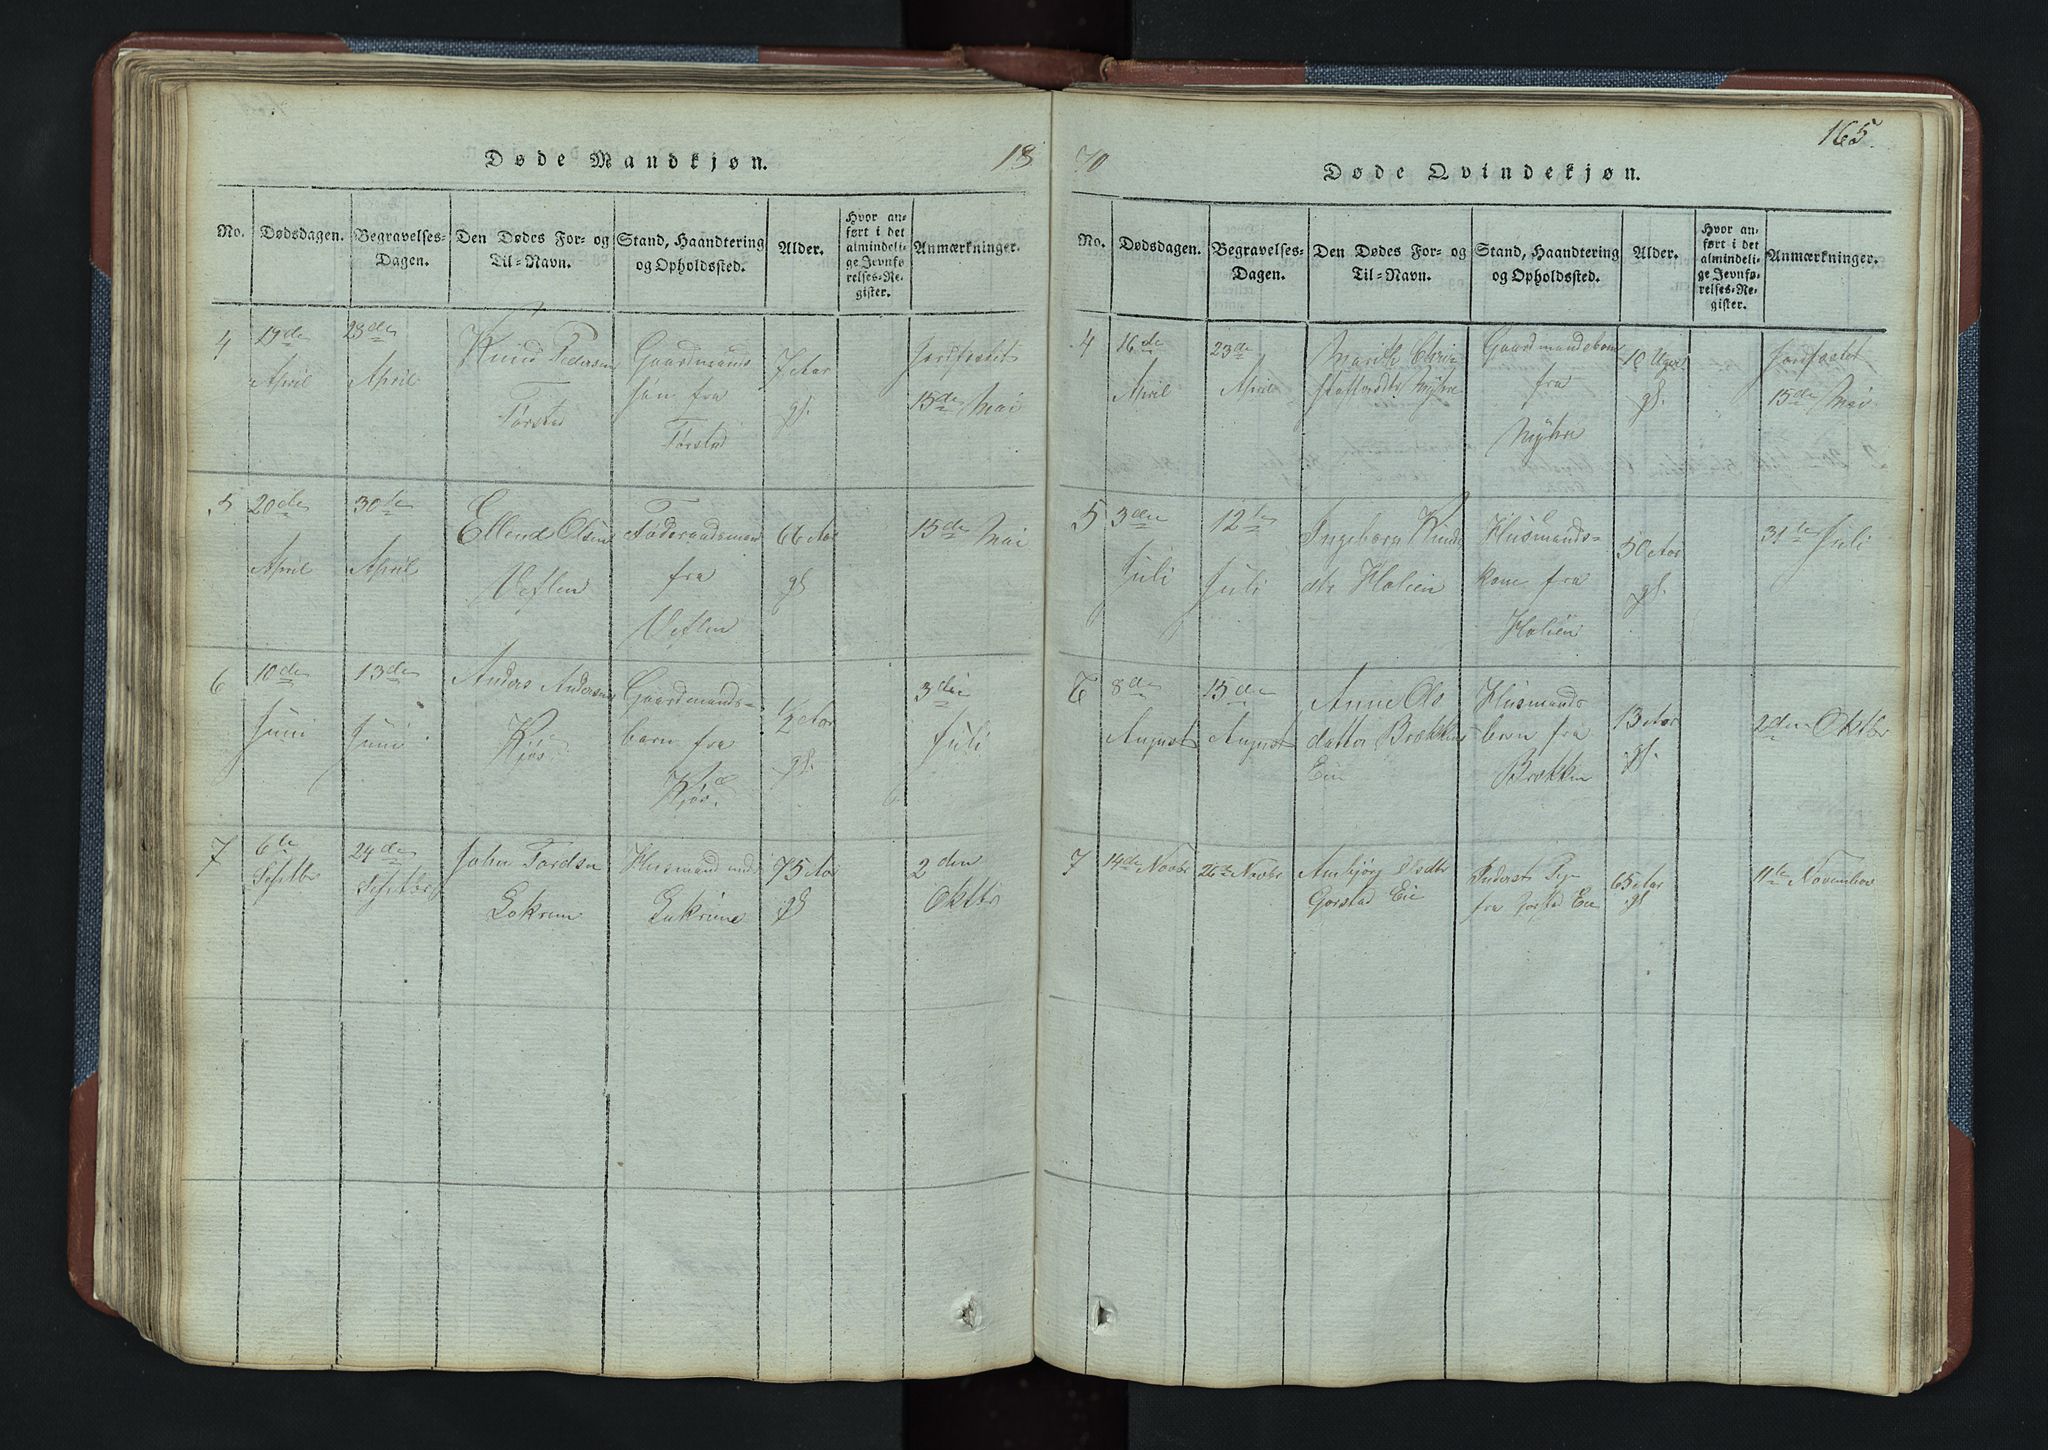 165.
Døde Mandkjøn.
18
No.
Dødsdagen.
Begravelses-
Dagen.
Den Dødes For- og
Til-Navn.
Stand, Haandtering
og Opholdssted.
Alder.
Hvor an-
ført i det
almindeli-
ge Jevnfø-
relses-Re-
gister.
Anmærkninger.
4
19de
April
23de
April
Knud Pedersen
Tørstad
Gaardmands
søn fra
Tørstad
7 Aar
gl.
Jordfæstet
15de Mai
5
20de
April
30te
April
Ellend Olsen
Veflen
Føderaadsmand
fra
Veflen
66 Aar
gl
15de Mai
6
10de
Juni
13de
Juni
Anders Andersen
Kjøs
Gaardmands-
barn fra
Kjøs
1/2 Aar
gl.
3die
Juli
7
6te
Septbr
24de
Septbr
John Tordsen
Lokrim
Husmand
Lokrime
75 Aar
gl
2den
Oktbr
70
Døde Qvindekjøn.
No.
Dødsdagen.
Begravelses-
Dagen.
Den Dødes For- og
Til-Navn.
Stand, Haandtering
og Opholdssted.
Alder.
Hvor an-
ført i det
almindeli-
ge Jevnfø-
relses-Re-
gister.
Anmærkninger.
4
16de
April
23de
April
Marith Chri-
stoffersdtr Myhre
Gaardmandsbarn
fra
Myhre
10 Uger
gl.
Jordfæstet
15de Mai
5
3die
Juli
12te
Juli
Ingeborg Knuds
dtr Holien
Husmands-
kone fra
Holien
50 Aar
gl.
31te Juli
6
8de
August
15de
August
Anne Ols
datter Brækken
Eie
Husmands
barn fra
Brækken
13 Aar
gl.
2den Oktbr
7
14de Novbr
26de Novbr
Anbjørg
Gorstad Eie
fra Eie
65 Aar
gl
11te November